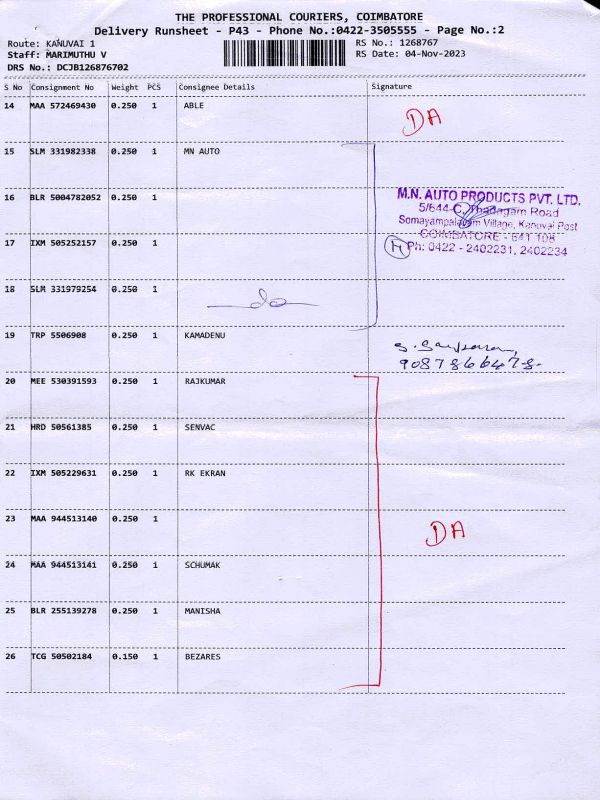 THE PROFESSIONAL COURIERS, COIMBATORE
Delivery Runsheet - P43 - Phone No.:0422-3505555 - Page No.:2
Route: KANUVAI 1 RS No.: 1268767
Staff: MARIMUTHU V RS Date: 04-Nov-2023
DRS No.: DCJB126876702
S No Consignment No Weight PCS Consignee Details Signature
14 MAA 572469430 0.250 1 ABLE
DA
15 SLM 331982338 0.250 1 MN AUTO
16 BLR 5004782052 0.250 1
M.N. AUTO PRODUCTS PVT. LTD.
5/644-C, Thadagam Road
Somayampalayam Village, Kanuvai Post
COIMBATORE - 641 108
Ph: 0422 - 2402231, 2402234
17 IXM 505252157 0.250 1
18 SLM 331979254 0.250 1
do
19 TRP 5506908 0.250 1 KAMADENU
20 MEE 530391593 0.250 1 RAJKUMAR
21 HRD 50561385 0.250 1 SENVAC
22 IXM 505229631 0.250 1 RK EKRAN
23 MAA 944513140 0.250 1
DA
24 MAA 944513141 0.250 1 SCHUMAK
25 BLR 255139278 0.250 1 MANISHA
26 TCG 50502184 0.150 1 BEZARES